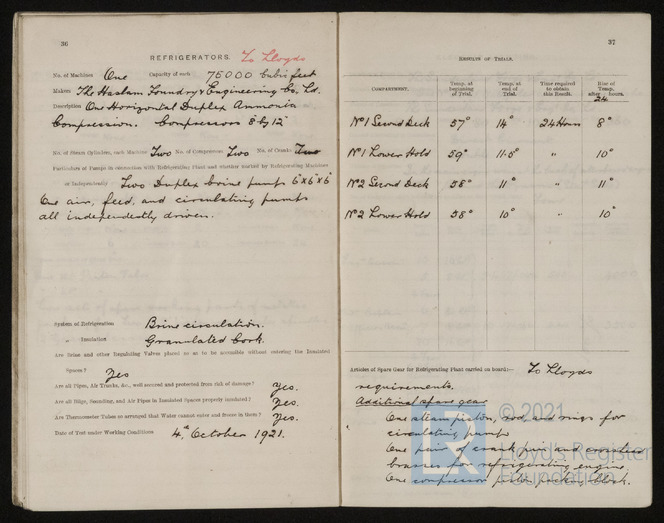 36
REFRIGERATORS. To Lloyds
No. of Machines One Capacity of each 75000 cubic feet
Makers The Haslam Foundry & Engineering Co. Ld.
Description One Horizontal Duplex Ammonia
Compression. Compressors 8 by 12"
No. of Steam Cylinders, each Machine Two No. of Compressors Two No. of Cranks Two
Particulars of Pumps in connection with Refrigerating Plant and whether worked by Refrigerating Machines
or Independently Two Duplex brine pumps 6"x6"x6"
One air, feed, and circulating pumps
all independently driven.
System of Refrigeration Brine circulation.
„ Insulation Granulated Cork.
Are Brine and other Regulating Valves placed so as to be accessible without entering the Insulated
Spaces? Yes
Are all Pipes, Air Trunks, &c., well secured and protected from risk of damage? Yes.
Are all Bilge, Sounding, and Air Pipes in Insulated Spaces properly insulated? Yes.
Are Thermometer Tubes so arranged that Water cannot enter and freeze in them? Yes.
Date of Test under Working Conditions 4th October 1921.
37
RESULTS OF TRIALS.
COMPARTMENT. Temp. at beginning of Trial. Temp. at end of Trial. Time required to obtain this Result. Rise of Temp. after 24 hours.
No 1 Second Deck 57° 14° 24 Hours 8°
No 1 Lower Hold 59° 11.5° „ 10°
No 2 Second Deck 58° 11° „ 11°
No 2 Lower Hold 58° 10° „ 10°
Articles of Spare Gear for Refrigerating Plant carried on board:— To Lloyds
requirements.
Additional spare gear
One steam piston, rod, and rings for
circulating pump
One pair of crank pin and crosshead
brasses for refrigerating engine.
One compressor piston packing block.
© 2021
Lloyd's Register
Foundation
LR